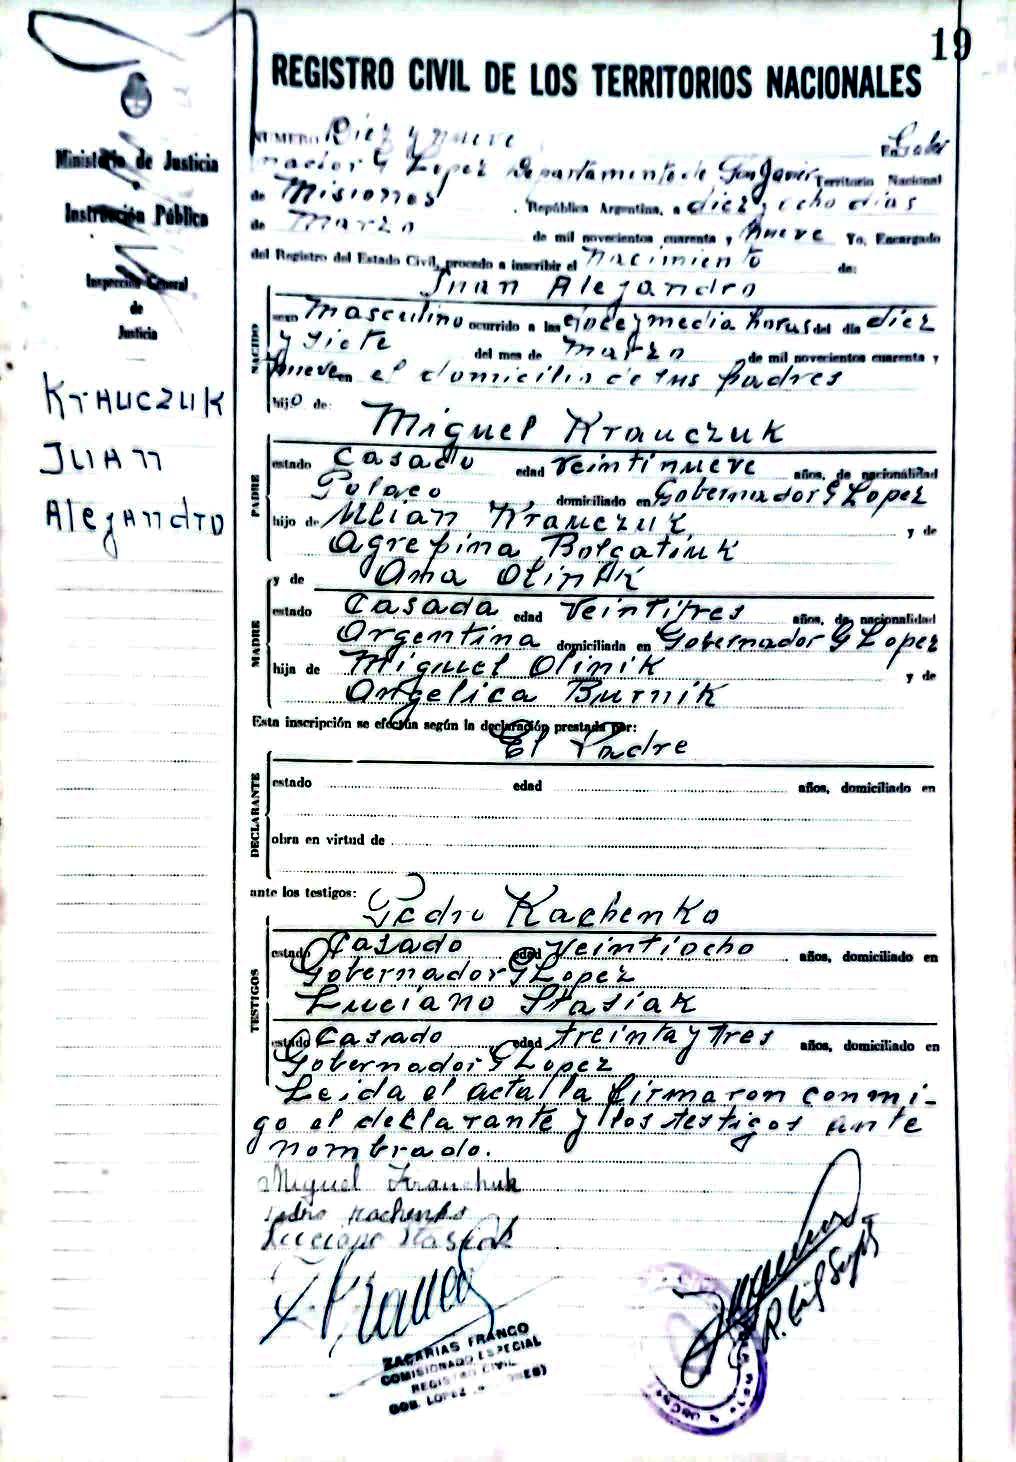 19
REGISTRO CIVIL DE LOS TERRITORIOS NACIONALES
Ministerio de Justicia
Instrucción Pública
Inspección General
de
Justicia
Krauczuk
Juan
Alejandro
NUMERO Diez y nueve En Gober
nador G Lopez Departamento de San Javier Territorio Nacional
de Misiones República Argentina, a diez y ocho dias
de Marzo de mil novecientos cuarenta y nueve Yo, Encargado
del Registro del Estado Civil, procedo a inscribir el nacimiento de:
Juan Alejandro
NACIDO
sexo masculino ocurrido a las doce y media horas del día diez
y siete del mes de Marzo de mil novecientos cuarenta y
nueve en el domicilio de sus padres
hijo de:
Miguel Krauczuk
PADRE
estado Casado edad veintinueve años, de nacionalidad
Polaco domiciliado en Gobernador G Lopez
hijo de Ulian Krauczuk y de
Agrepina Bolgatiuk
y de Ana Olinik
MADRE
estado Casada edad veintitres años, de nacionalidad
Argentina domiciliada en Gobernador G Lopez
hija de Miguel Olinik y de
Angelica Burnik
Esta inscripción se efectúa según la declaración prestada por:
El Padre
DECLARANTE
estado edad años, domiciliado en
obra en virtud de
ante los testigos:
Pedro Kachenko
TESTIGOS
estado Casado edad veintiocho años, domiciliado en
Gobernador G Lopez
Luciano Stasiak
estado Casado edad treinta y tres años, domiciliado en
Gobernador G Lopez
Leida el acta la firmaron conmi-
go el declarante y los testigos ante
nombrado.
Miguel Krauchuk
Pedro Kachenko
Luciano Stasiak
ZACARIAS FRANCO
COMISIONADO ESPECIAL
REGISTRO CIVIL
GOB. LOPEZ (MISIONES)